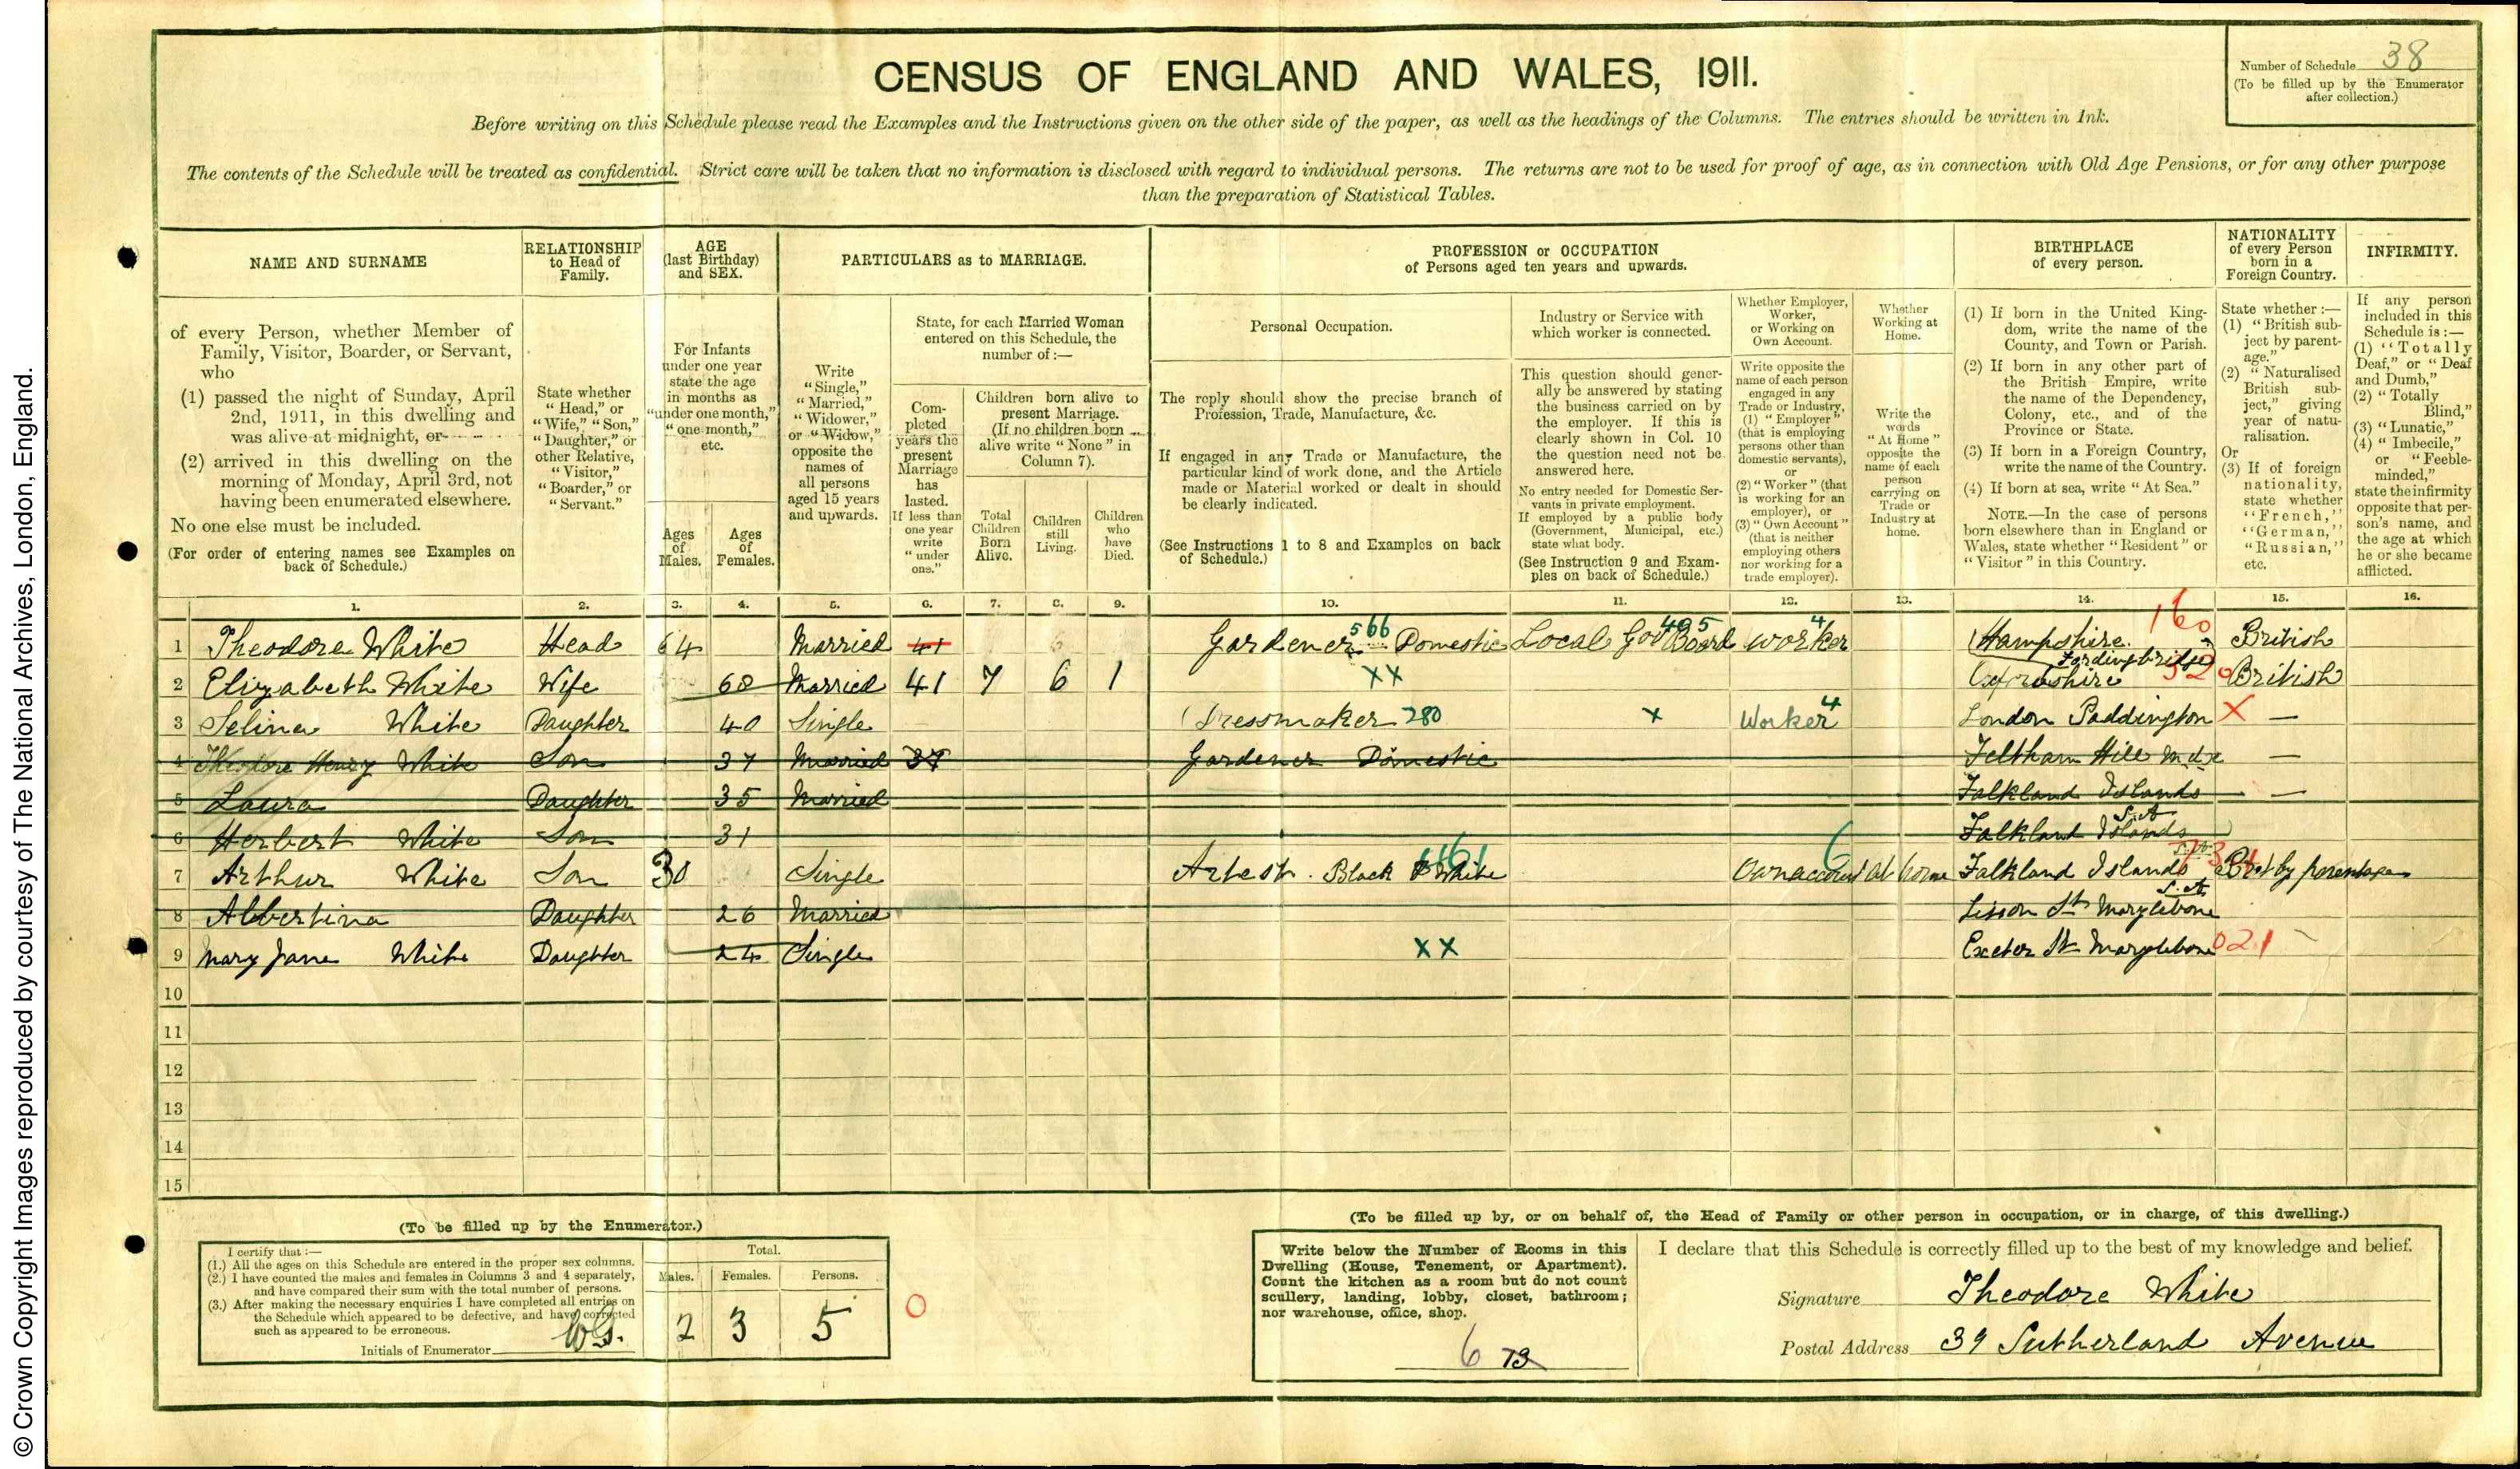 © Crown Copyright Images reproduced by courtesy of The National Archives, London, England.
CENSUS OF ENGLAND AND WALES, 1911.
Number of Schedule 38
(To be filled up by the Enumerator after collection.)
Before writing on this Schedule please read the Examples and the Instructions given on the other side of the paper, as well as the headings of the Columns. The entries should be written in Ink.
The contents of the Schedule will be treated as confidential. Strict care will be taken that no information is disclosed with regard to individual persons. The returns are not to be used for proof of age, as in connection with Old Age Pensions, or for any other purpose
than the preparation of Statistical Tables.
NAME AND SURNAME
RELATIONSHIP to Head of Family.
AGE (last Birthday) and SEX.
PARTICULARS as to MARRIAGE.
PROFESSION or OCCUPATION
of Persons aged ten years and upwards.
BIRTHPLACE of every person.
NATIONALITY of every Person born in a Foreign Country.
INFIRMITY.
of every Person, whether Member of
Family, Visitor, Boarder, or Servant,
who
(1) passed the night of Sunday, April
2nd, 1911, in this dwelling and
was alive at midnight, or
(2) arrived in this dwelling on the
morning of Monday, April 3rd, not
having been enumerated elsewhere.
No one else must be included.
(For order of entering names see Examples on
back of Schedule.)
State whether
"Head," or
"Wife," "Son,"
"Daughter," or
other Relative,
"Visitor,"
"Boarder," or
"Servant."
For Infants
under one year
state the age
in months as
"under one month,"
"one month,"
etc.
Ages of Males.
Ages of Females.
Write
"Single,"
"Married,"
"Widower,"
or "Widow,"
opposite the
names of
all persons
aged 15 years
and upwards.
State, for each Married Woman
entered on this Schedule, the
number of:—
Completed years the present Marriage has lasted.
If less than one year write "under one."
Children born alive to
present Marriage.
(If no children born
alive write "None" in
Column 7).
Total Children Born Alive.
Children still Living.
Children who have Died.
Personal Occupation.
The reply should show the precise branch of
Profession, Trade, Manufacture, &c.
If engaged in any Trade or Manufacture, the
particular kind of work done, and the Article
made or Material worked or dealt in should
be clearly indicated.
(See Instructions 1 to 8 and Examples on back
of Schedule.)
Industry or Service with
which worker is connected.
This question should gener-
ally be answered by stating
the business carried on by
the employer. If this is
clearly shown in Col. 10
the question need not be
answered here.
No entry needed for Domestic Ser-
vants in private employment.
If employed by a public body
(Government, Municipal, etc.)
state what body.
(See Instruction 9 and Exam-
ples on back of Schedule.)
Whether Employer,
Worker,
or Working on
Own Account.
Write opposite the
name of each person
engaged in any
Trade or Industry,
(1) "Employer"
(that is employing
persons other than
domestic servants),
or
(2) "Worker" (that
is working for an
employer), or
(3) "Own Account"
(that is neither
employing others
nor working for a
trade employer).
Whether
Working at
Home.
Write the
words
"At Home"
opposite the
name of each
person
carrying on
Trade or
Industry at
home.
(1) If born in the United King-
dom, write the name of the
County, and Town or Parish.
(2) If born in any other part of
the British Empire, write
the name of the Dependency,
Colony, etc., and of the
Province or State.
(3) If born in a Foreign Country,
write the name of the Country.
(4) If born at sea, write "At Sea."
NOTE.—In the case of persons
born elsewhere than in England or
Wales, state whether "Resident" or
"Visitor" in this Country.
State whether:—
(1) "British sub-
ject by parent-
age."
(2) "Naturalised
British sub-
ject," giving
year of natu-
ralisation.
Or
(3) If of foreign
nationality,
state whether
"French,"
"German,"
"Russian,"
etc.
If any person
included in this
Schedule is:—
(1) "Totally
Deaf," or "Deaf
and Dumb,"
(2) "Totally
Blind,"
(3) "Lunatic,"
(4) "Imbecile,"
or "Feeble-
minded,"
state the infirmity
opposite that per-
son's name, and
the age at which
he or she became
afflicted.
1. 2. 3. 4. 5. 6. 7. 8. 9. 10. 11. 12. 13. 14. 15. 16.
1 Theodore White Head 64 Married 41 Gardener 566 Domestic Local Gov Board 405 Worker 4 Hampshire Fordingbridge 160 British
2 Elizabeth White Wife 68 Married 41 7 6 1 XX Oxfordshire British
3 Selina White Daughter 40 Single Dressmaker 280 x Worker 4 London Paddington X —
4 Theodore Henry White Son 37 Married Gardener Domestic Feltham Hill Mdx —
5 Laura Daughter 35 Married Falkland Islands —
6 Herbert White Son 31 Falkland Islands S.A
7 Arthur White Son 30 Single Artest. Black & White Own account At home Falkland Islands Brit by parentage
8 Albertina Daughter 26 Married Lisson St Marylebone
9 Mary Jane White Daughter 24 Single XX Exeter St Marylebone 021
10
11
12
13
14
15
(To be filled up by the Enumerator.)
I certify that:—
(1.) All the ages on this Schedule are entered in the proper sex columns.
(2.) I have counted the males and females in Columns 3 and 4 separately,
and have compared their sum with the total number of persons.
(3.) After making the necessary enquiries I have completed all entries on
the Schedule which appeared to be defective, and have corrected
such as appeared to be erroneous.
Initials of Enumerator
Total.
Males. Females. Persons.
2 3 5
0
(To be filled up by, or on behalf of, the Head of Family or other person in occupation, or in charge, of this dwelling.)
Write below the Number of Rooms in this
Dwelling (House, Tenement, or Apartment).
Count the kitchen as a room but do not count
scullery, landing, lobby, closet, bathroom;
nor warehouse, office, shop.
6
I declare that this Schedule is correctly filled up to the best of my knowledge and belief.
Signature Theodore White
Postal Address 39 Sutherland Avenue